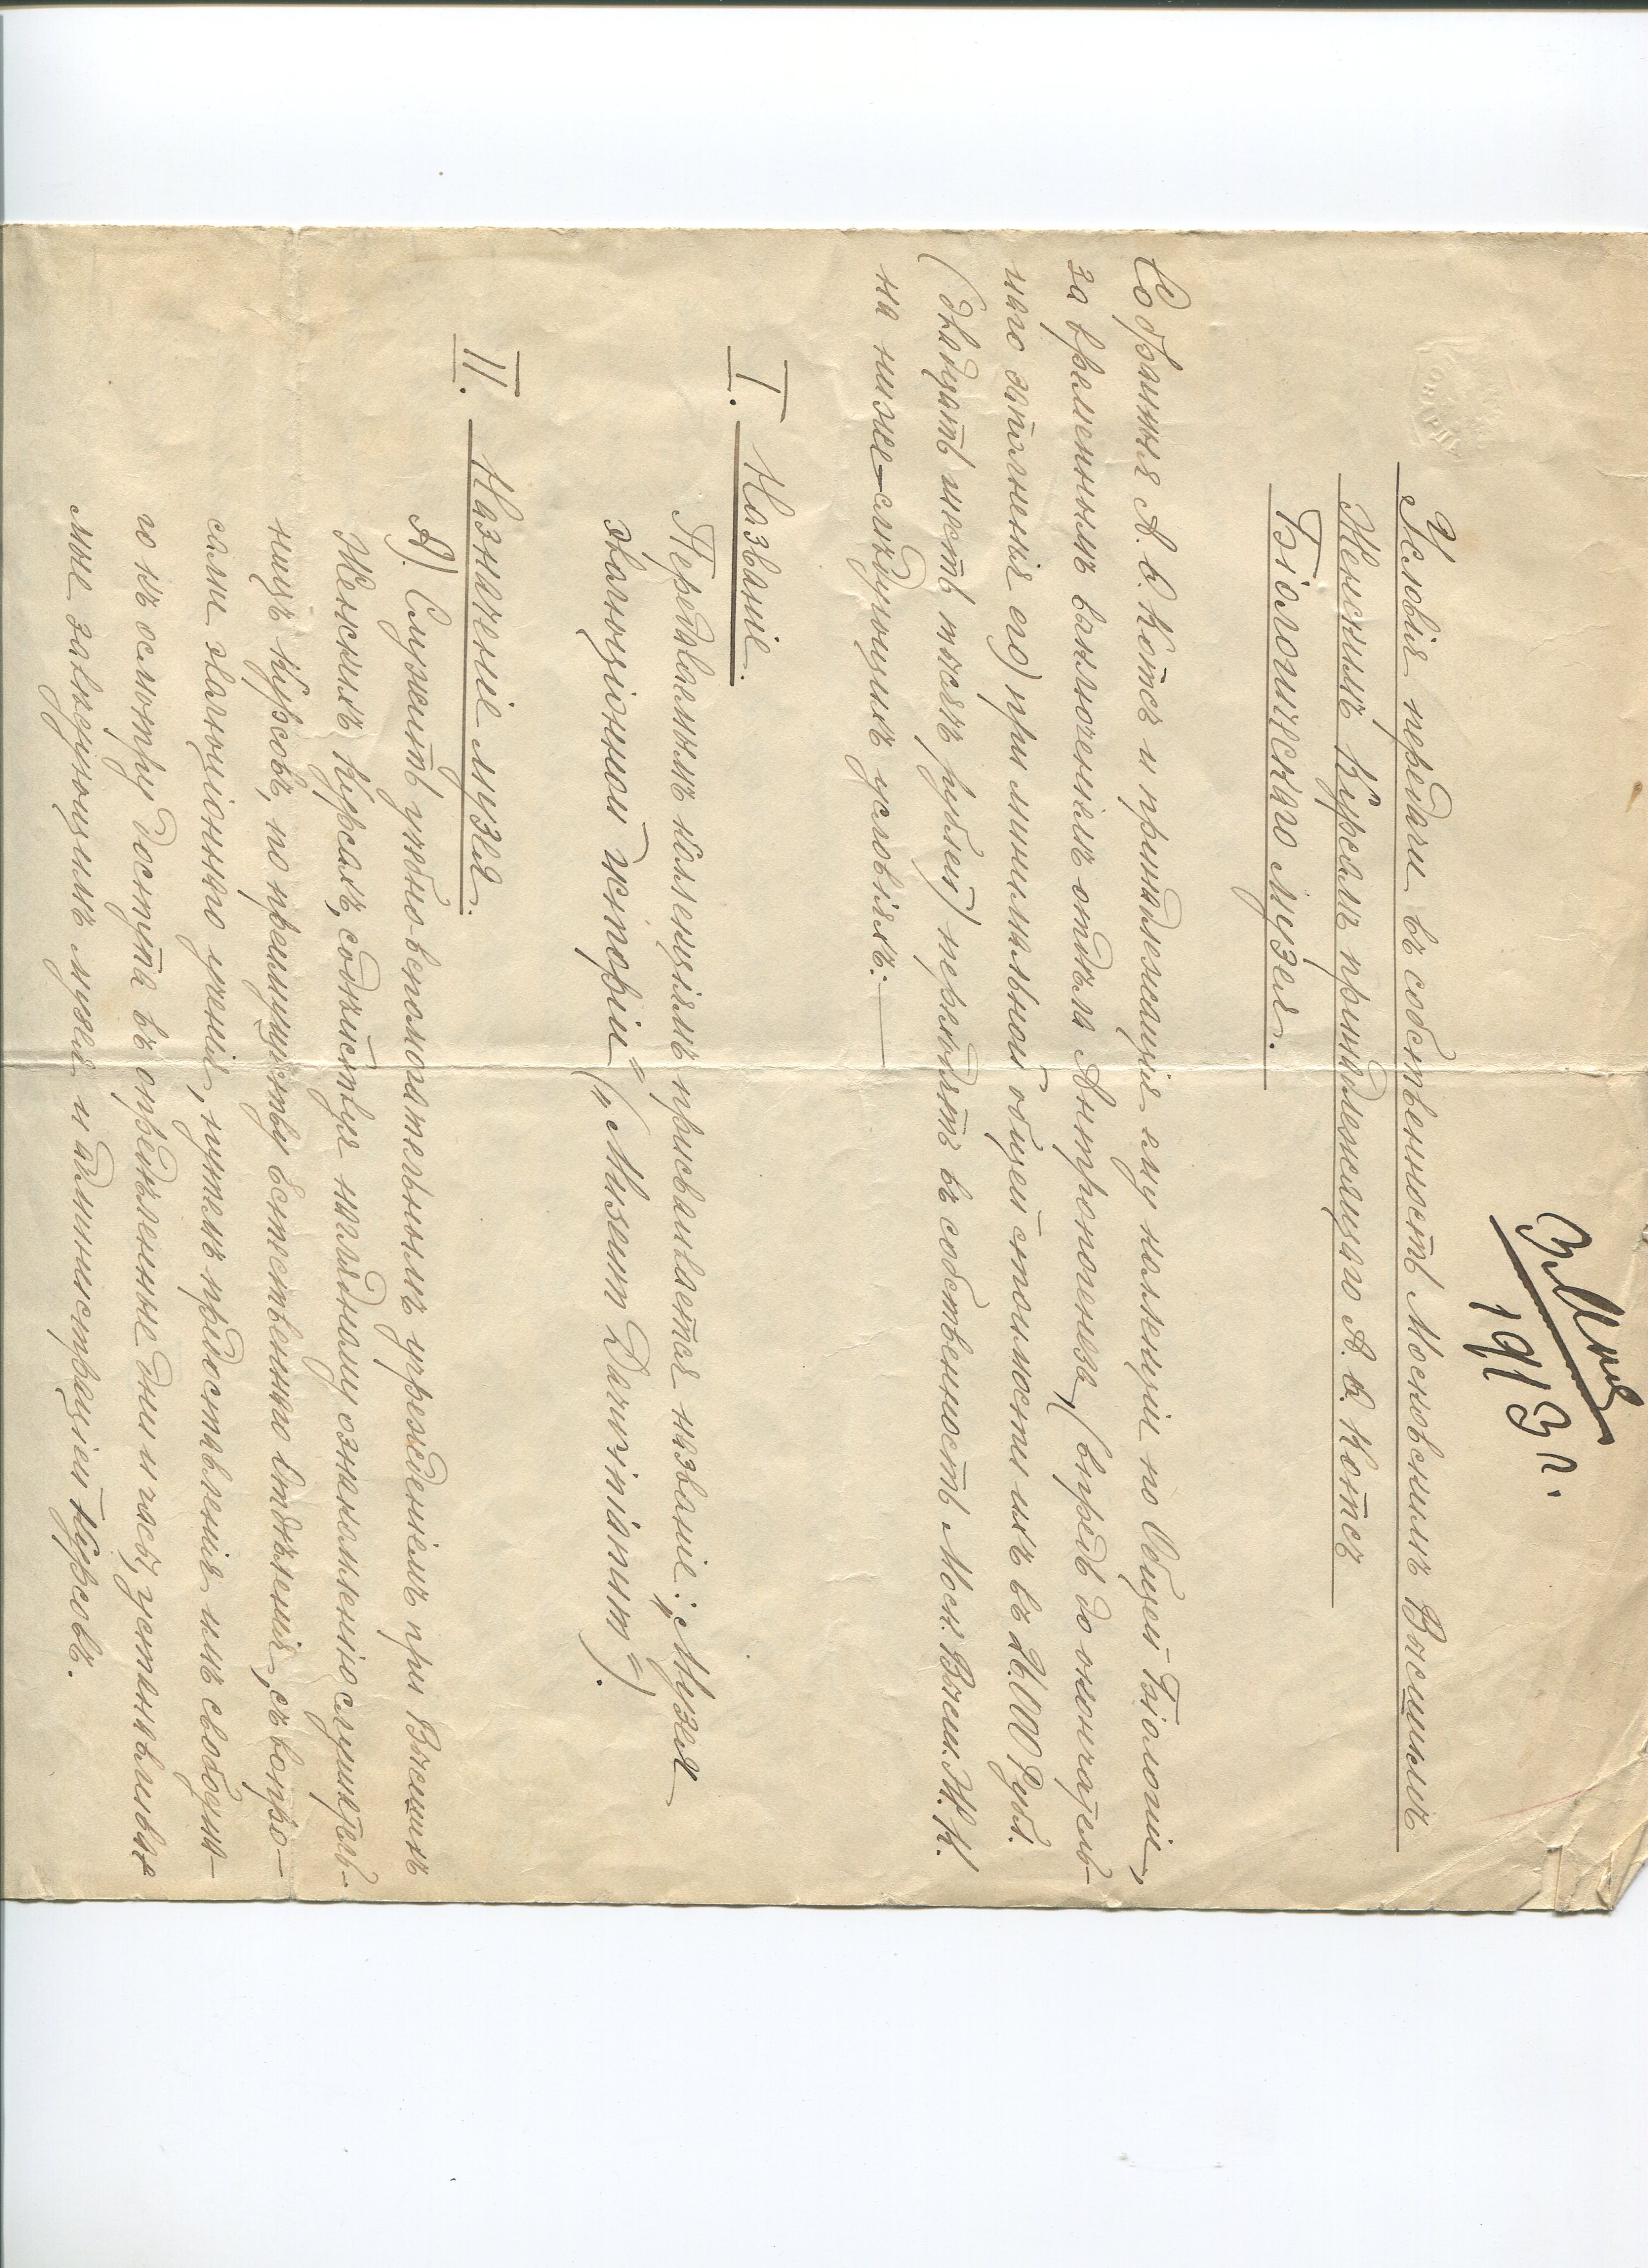 3 Мая
1913 г.
Условія передачи въ собственность Московскимъ Высшимъ
Женскимъ Курсамъ принадлежащаго А. Ѳ. Котсъ
Біологическаго Музея.
Собранныя А. Ѳ. Котсъ и принадлежащія ему коллекціи по Общей Біологіи,
за временнымъ включеніемъ отдѣла Антропогенеза, (впредь до окончатель-
наго заполненія его) при минимальной общей стоимости ихъ въ 26.000 Руб.
(двадцать шесть тысячъ рублей) переходятъ въ собственность Моск. Высш. Ж. К.
на ниже-слѣдующихъ условіяхъ:
I. Названіе.
Передаваемымъ коллекціямъ присвоивается названіе: „Музея
эволюціонной исторіи" („Museum Darwinianum").
II. Назначеніе музея.
А). Служить учебно-вспомогательнымъ учрежденіемъ при Высшихъ
Женскихъ Курсахъ, содѣйствуя наглядному ознакомленію слушатель-
ницъ Курсовъ, по преимуществу Естественнаго Отдѣленія, съ вопро-
сами эволюціоннаго ученія, путемъ предоставленія имъ свободна-
го къ осмотру доступа въ опредѣленные дни и часы, устанавливае-
мые завѣдующимъ музея и администраціей Курсовъ.